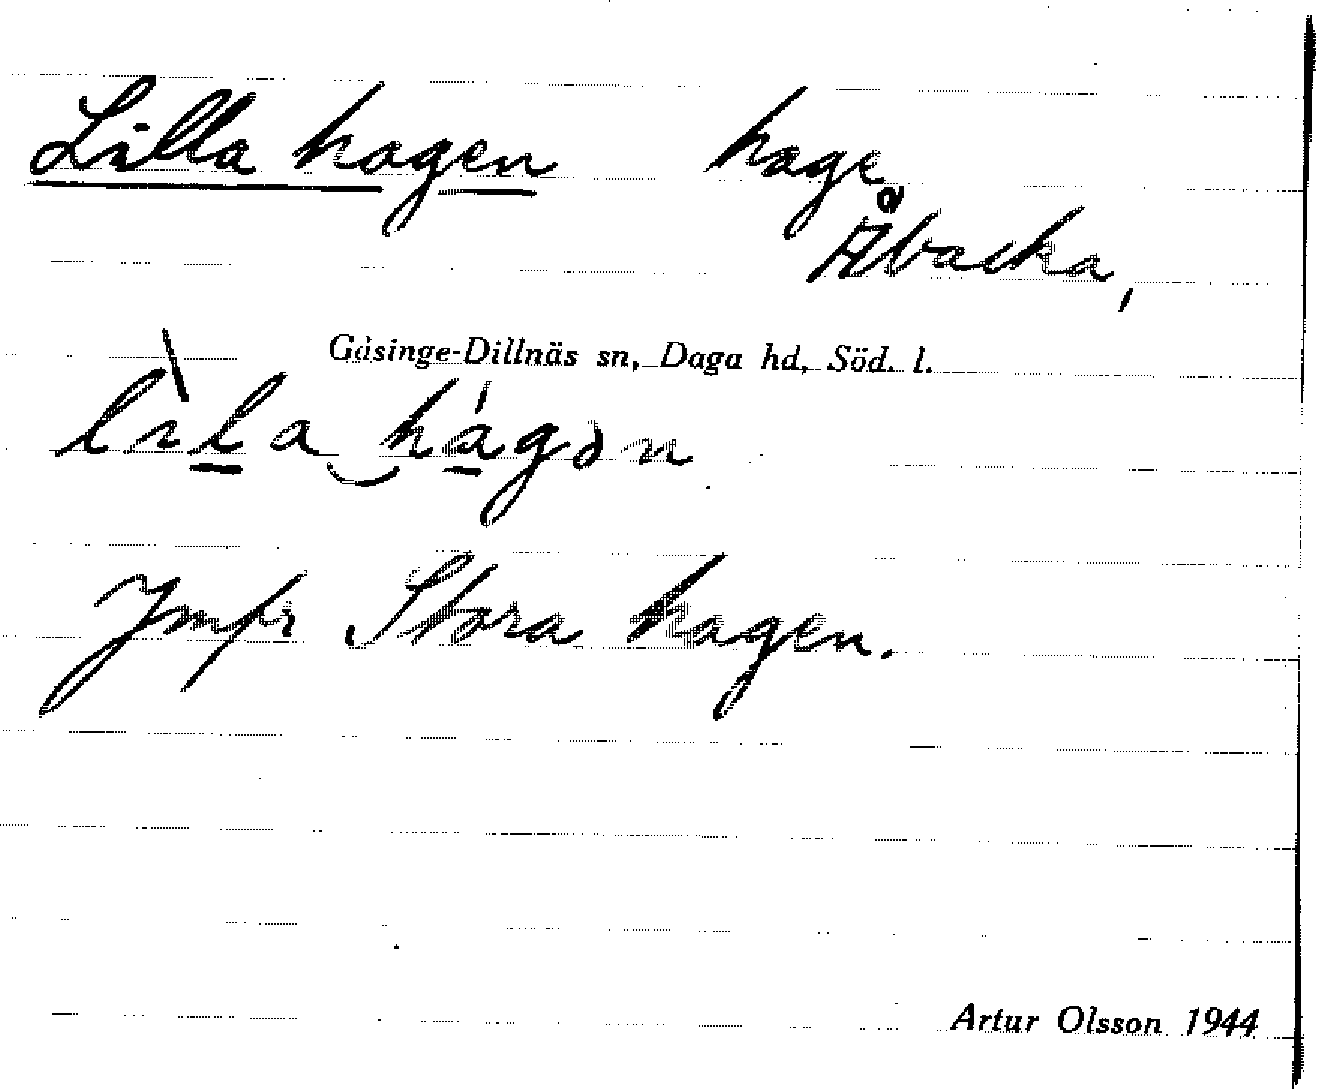 Lilla hagen hage
Åbacka,
Gåsinge-Dillnäs sn, Daga hd, Söd. l.
lìla hágən
Jmfr Stora hagen.
Artur Olsson 1944